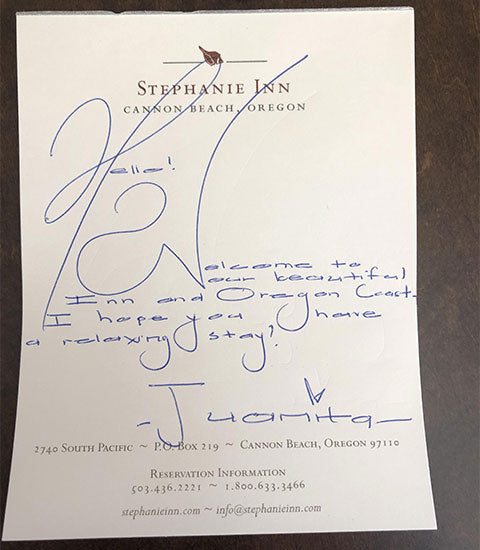 STEPHANIE INN
CANNON BEACH, OREGON
Hello!
Welcome to
our beautiful
Inn and Oregon Coast.
I hope you have
a relaxing stay!
-Juanita-
2740 SOUTH PACIFIC ~ P.O. BOX 219 ~ CANNON BEACH, OREGON 97110
RESERVATION INFORMATION
503.436.2221 ~ 1.800.633.3466
stephanieinn.com ~ info@stephanieinn.com